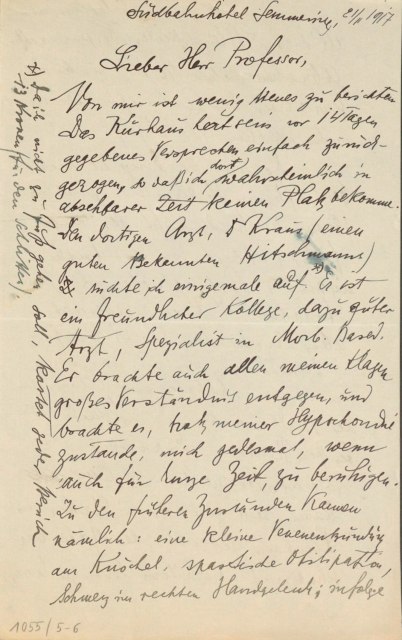 Südbahnhotel Semmering, 21/II 1917
Lieber Herr Professor,
Von mir ist wenig Neues zu berichten
Das Kurhaus hat sein vor 14 Tagen
gegebenes Versprechen einfach zurück-
gezogen, so daß ich dort wahrscheinlich in
absehbarer Zeit keinen Platz bekomme.
Den dortigen Arzt, Dr Kraus (einen
guten Bekannten Hitschmanns)
suchte ich einigemale auf. x) Er ist
ein freundlicher Kollege, dazu guter
Arzt, Spezialist in Morb. Based.
Er brachte auch allen meinen Klagen
großes Verständnis entgegen, und
brachte es, trotz meiner Hypochondrie
zustande, mich jedesmal, wenn
auch für kurze Zeit, zu beruhigen.
Zu den früheren Zuständen kamen
nämlich: eine kleine Venenentzündung
am Knöchel, spastische Obstipation,
Schmerz im rechten Handgelenk; infolge
x) Da ich nicht zu Fuß gehen soll, kostet jeder Besuch
13 Kronen (für den Schlitten).
1055/5-6